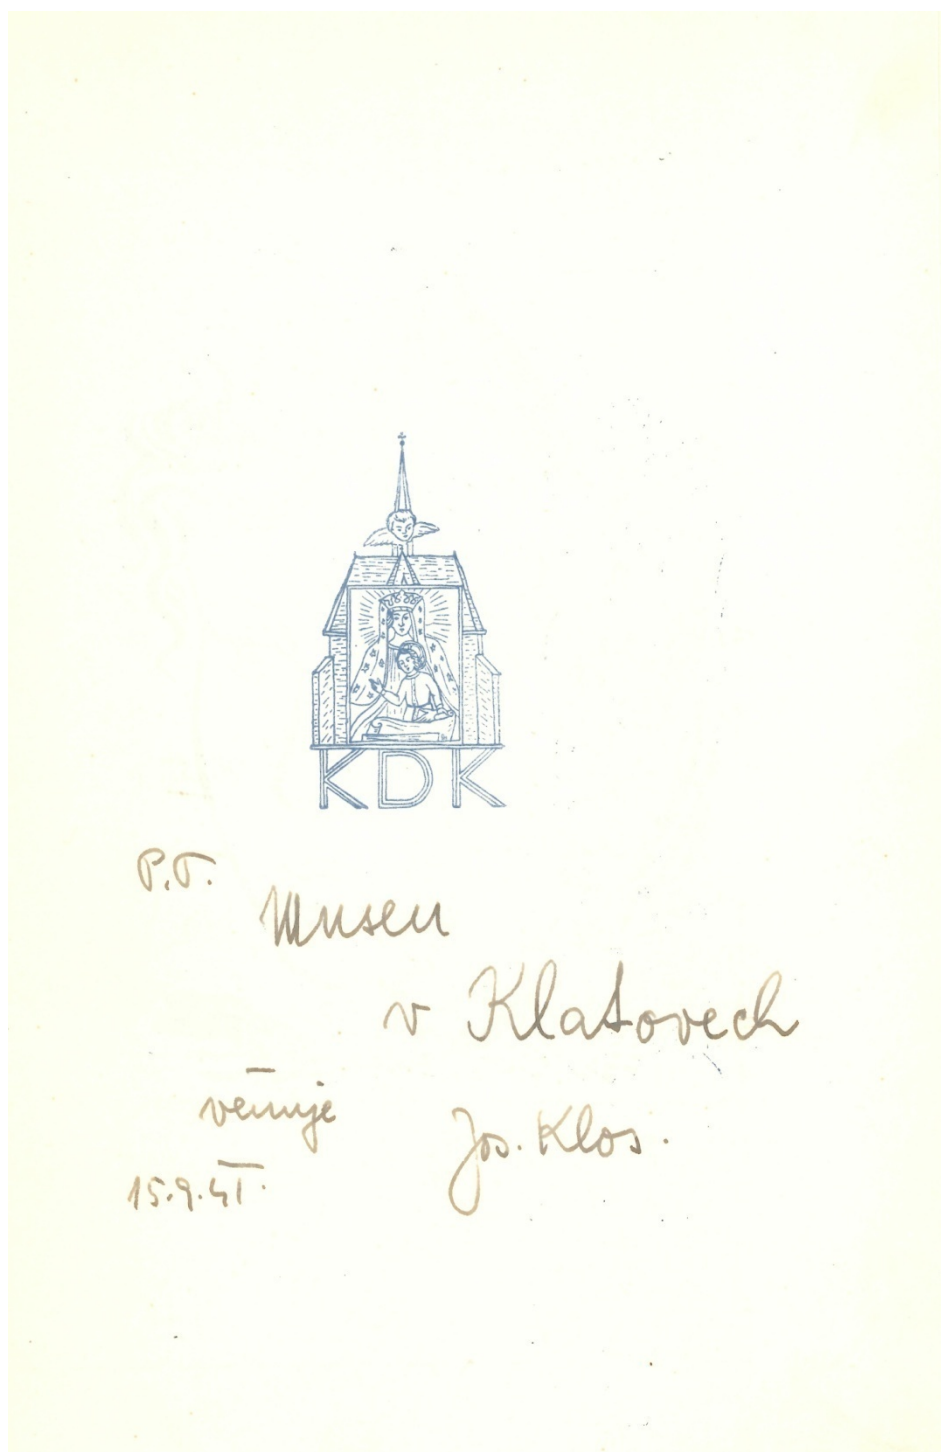 KDK
P.T.
Museu
v Klatovech
věnuje Jos. Klos.
15.9.41.